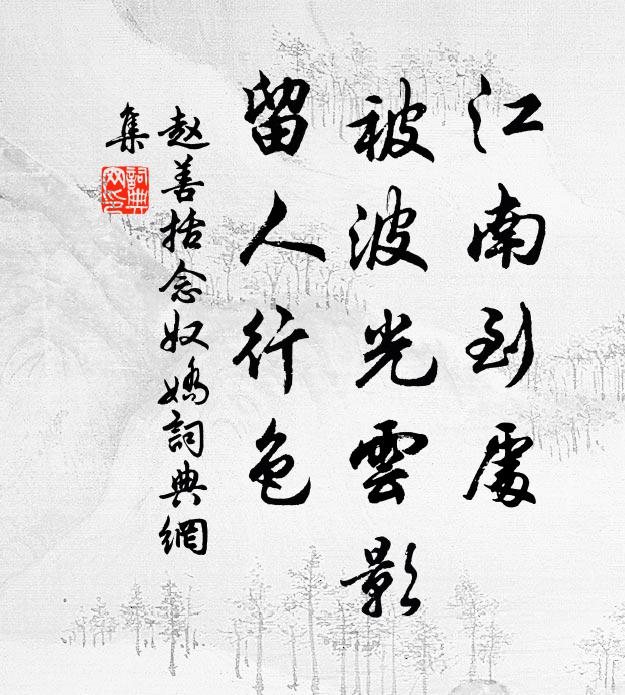 江南到處
被波光雲影
留人行色
赵善括念奴嬌詞典網
集
詞典
网印